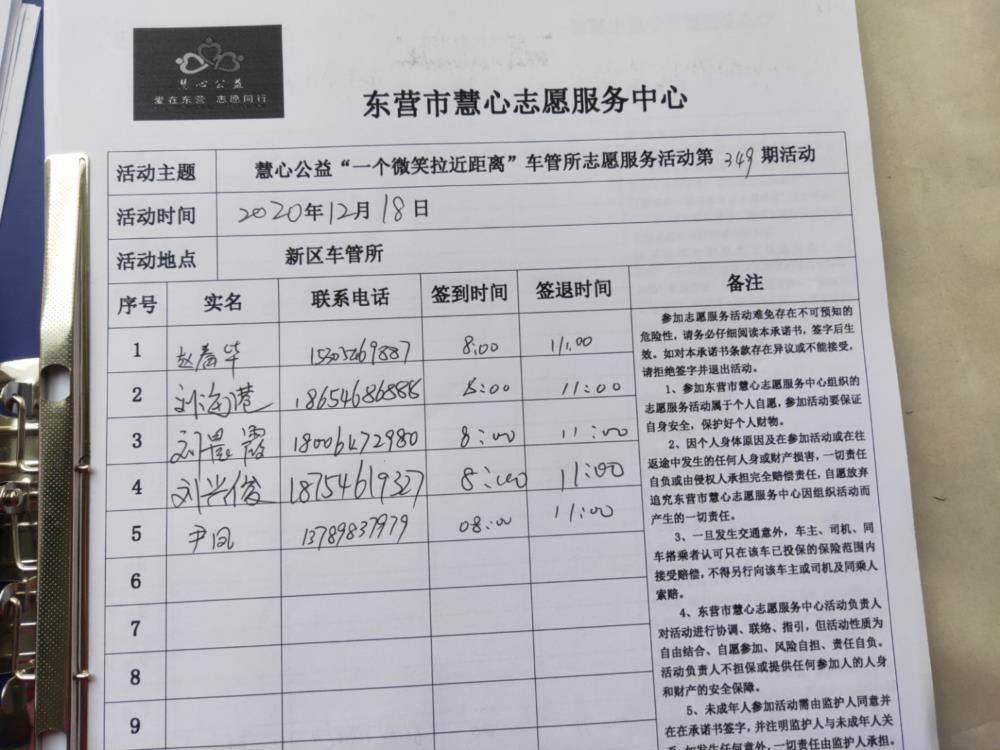 慧心公益
爱在东营 志愿同行
东营市慧心志愿服务中心
活动主题 慧心公益“一个微笑拉近距离”车管所志愿服务活动第349期活动
活动时间 2020年12月18日
活动地点 新区车管所
序号 实名 联系电话 签到时间 签退时间 备注
1 赵春华 15305469887 8:00 11:00
2 刘海港 18654686886 8:00 11:00
3 刘 霞 18006472980 8:00 11:00
4 刘兴俊 18754619327 8:00 11:00
5 尹凤 13789837979 08:00 11:00
6
7
8
9
参加志愿服务活动难免存在不可预知的
危险性，请务必仔细阅读本承诺书，签字后生
效。如对本承诺书条款存在异议或不能接受，
请拒绝签字并退出活动。
1、参加东营市慧心志愿服务中心组织的
志愿服务活动属于个人自愿，参加活动要保证
自身安全，保护好个人财物。
2、因个人身体原因及在参加活动或在往
返途中发生的任何人身或财产损害，一切责任
自负或由侵权人承担完全赔偿责任，自愿放弃
追究东营市慧心志愿服务中心因组织活动而
产生的一切责任。
3、一旦发生交通意外，车主、司机、同
车搭乘者认可只在该车已投保的保险范围内
接受赔偿，不得另行向该车主或司机及同乘人
索赔。
4、东营市慧心志愿服务中心活动负责人
对活动进行协调、联络、指引，但活动性质为
自由结合、自愿参加、风险自担、责任自负。
活动负责人不担保或提供任何参加人的人身
和财产的安全保障。
5、未成年人参加活动需由监护人同意并
在在承诺书签字，并注明监护人与未成年人关
系，如发生任何意外，一切责任由监护人承担。